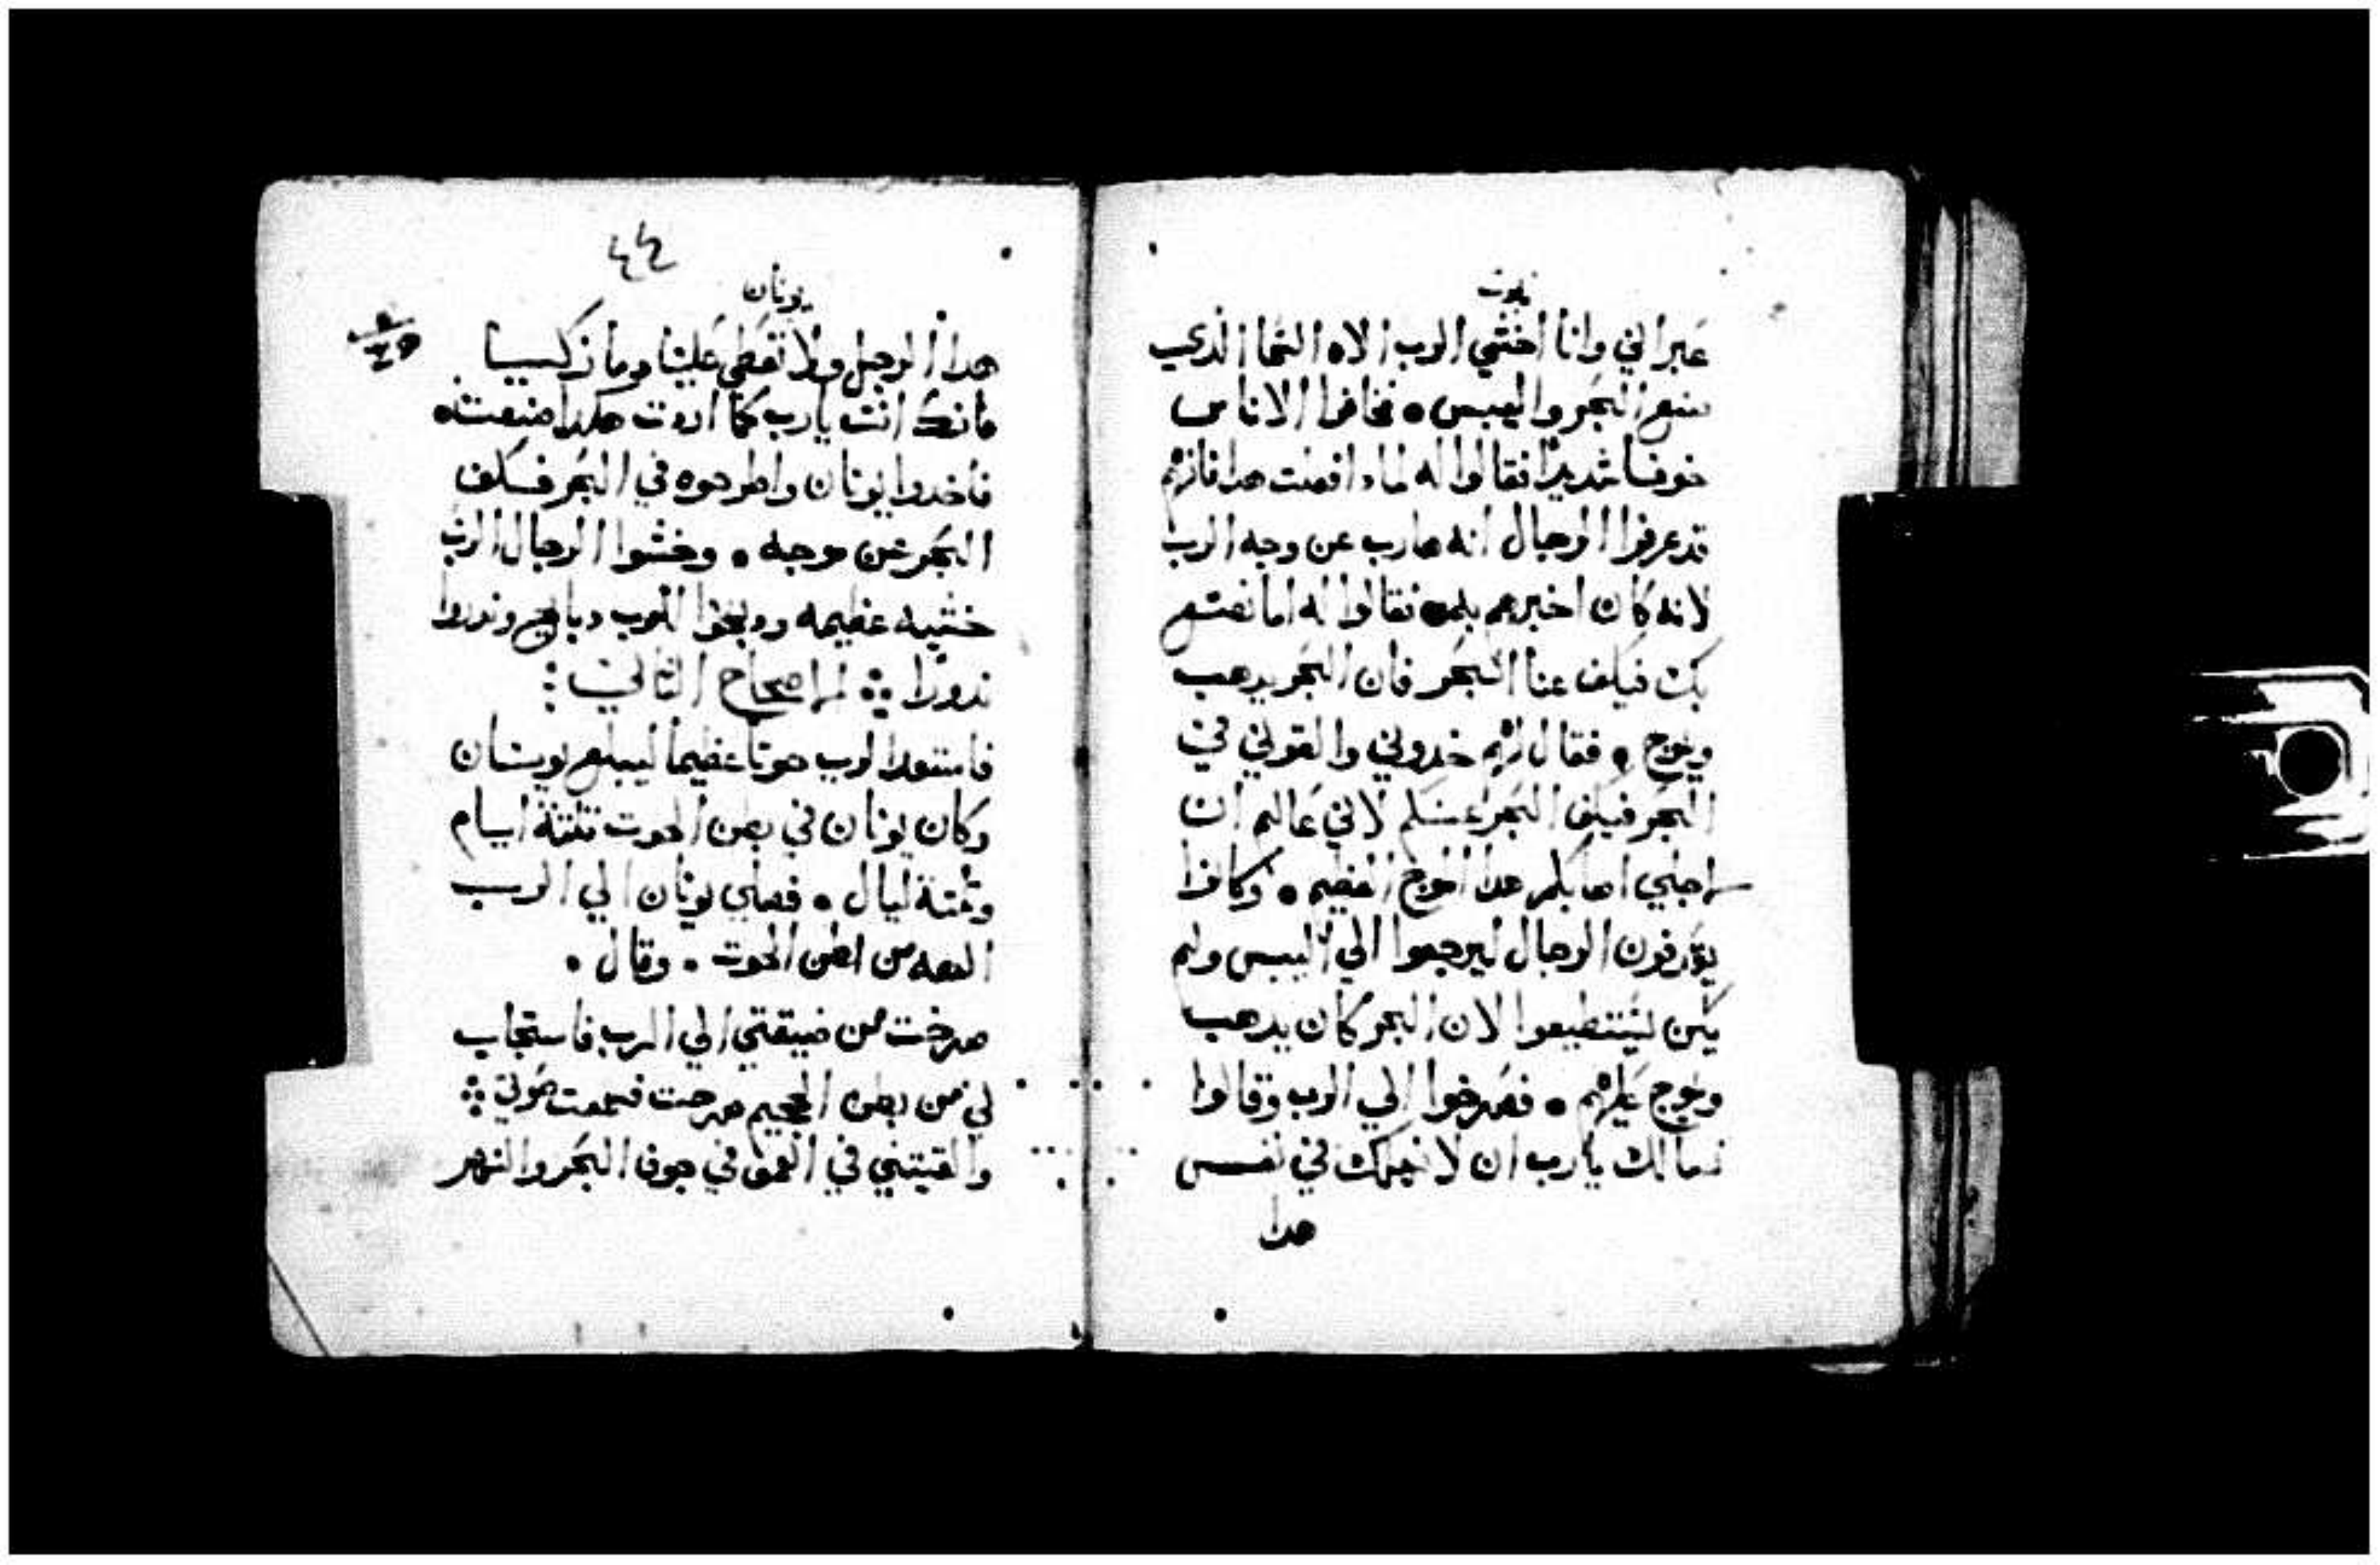 نبوت
عبراني وانا اخشي الرب الاه السما الذي
صنع البحر واليبس ۰ فخافوا الاناس
خوفا شديدا فقالوا له لمادا فعلت هدا فانهم
قد عرفوا الرجال انه هارب عن وجه الرب
لانه كان اخبرهم فقالوا له اما نصنع
بك فيكف عنا البحر فان البحر يدهب
ويموج ۰ فقال لهم خدوني والقوني في
البحر فيكف البحر عنكم لاني عالم ان
اجلي اصابكم هدا الموج العظيم ۰ وكانوا
يقدفون الرجال ليرجعوا الي اليبس ولم
يكن يستطيعوا لان البحر كان يدهب
ويموج عليهم ۰ فصرخوا الي الرب وقالوا
نسالك يارب ان لا نهلك في نفس
هدا
٤٤
يونان
هدا الرجل ولا تعطي علينا دما زكيا
فانك انت يارب كما اردت هكدا صنعت ۰
فاخدوا يونان واطرحوه في البحر فكف
البحر عن موجه ۰ وخشوا الرجال الرب
خشيه عظيمه ودبحوا للرب دبايح وندروا
ندورا ⁘ الاصحاح التاني :
فاستعد الرب حوتا عظيما ليبلع يونان
وكان يونان في بطن الحوت تلتة ايام
وتلتة ليال ۰ فصلي يونان الي الرب
الهه من بطن الحوت ۰ وقال ۰
صرخت من ضيقتي الي الرب فاستجاب
لي من بطن الجحيم صرخت فسمعت صوتي ⁘
والقيتني في العمق في جوف البحر والنهر